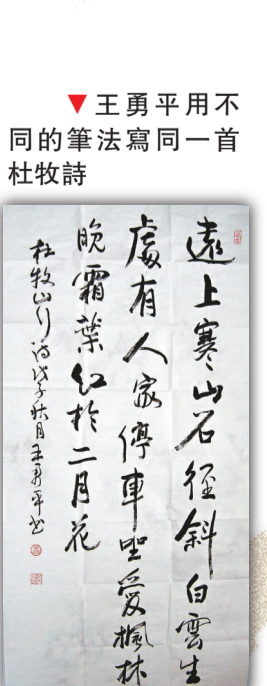 ▼王勇平用不
同的筆法寫同一首
杜牧詩
遠上寒山石徑斜白雲生
處有人家停車坐愛楓林
晚霜葉紅於二月花
杜牧山行詩戊子秋月王勇平書